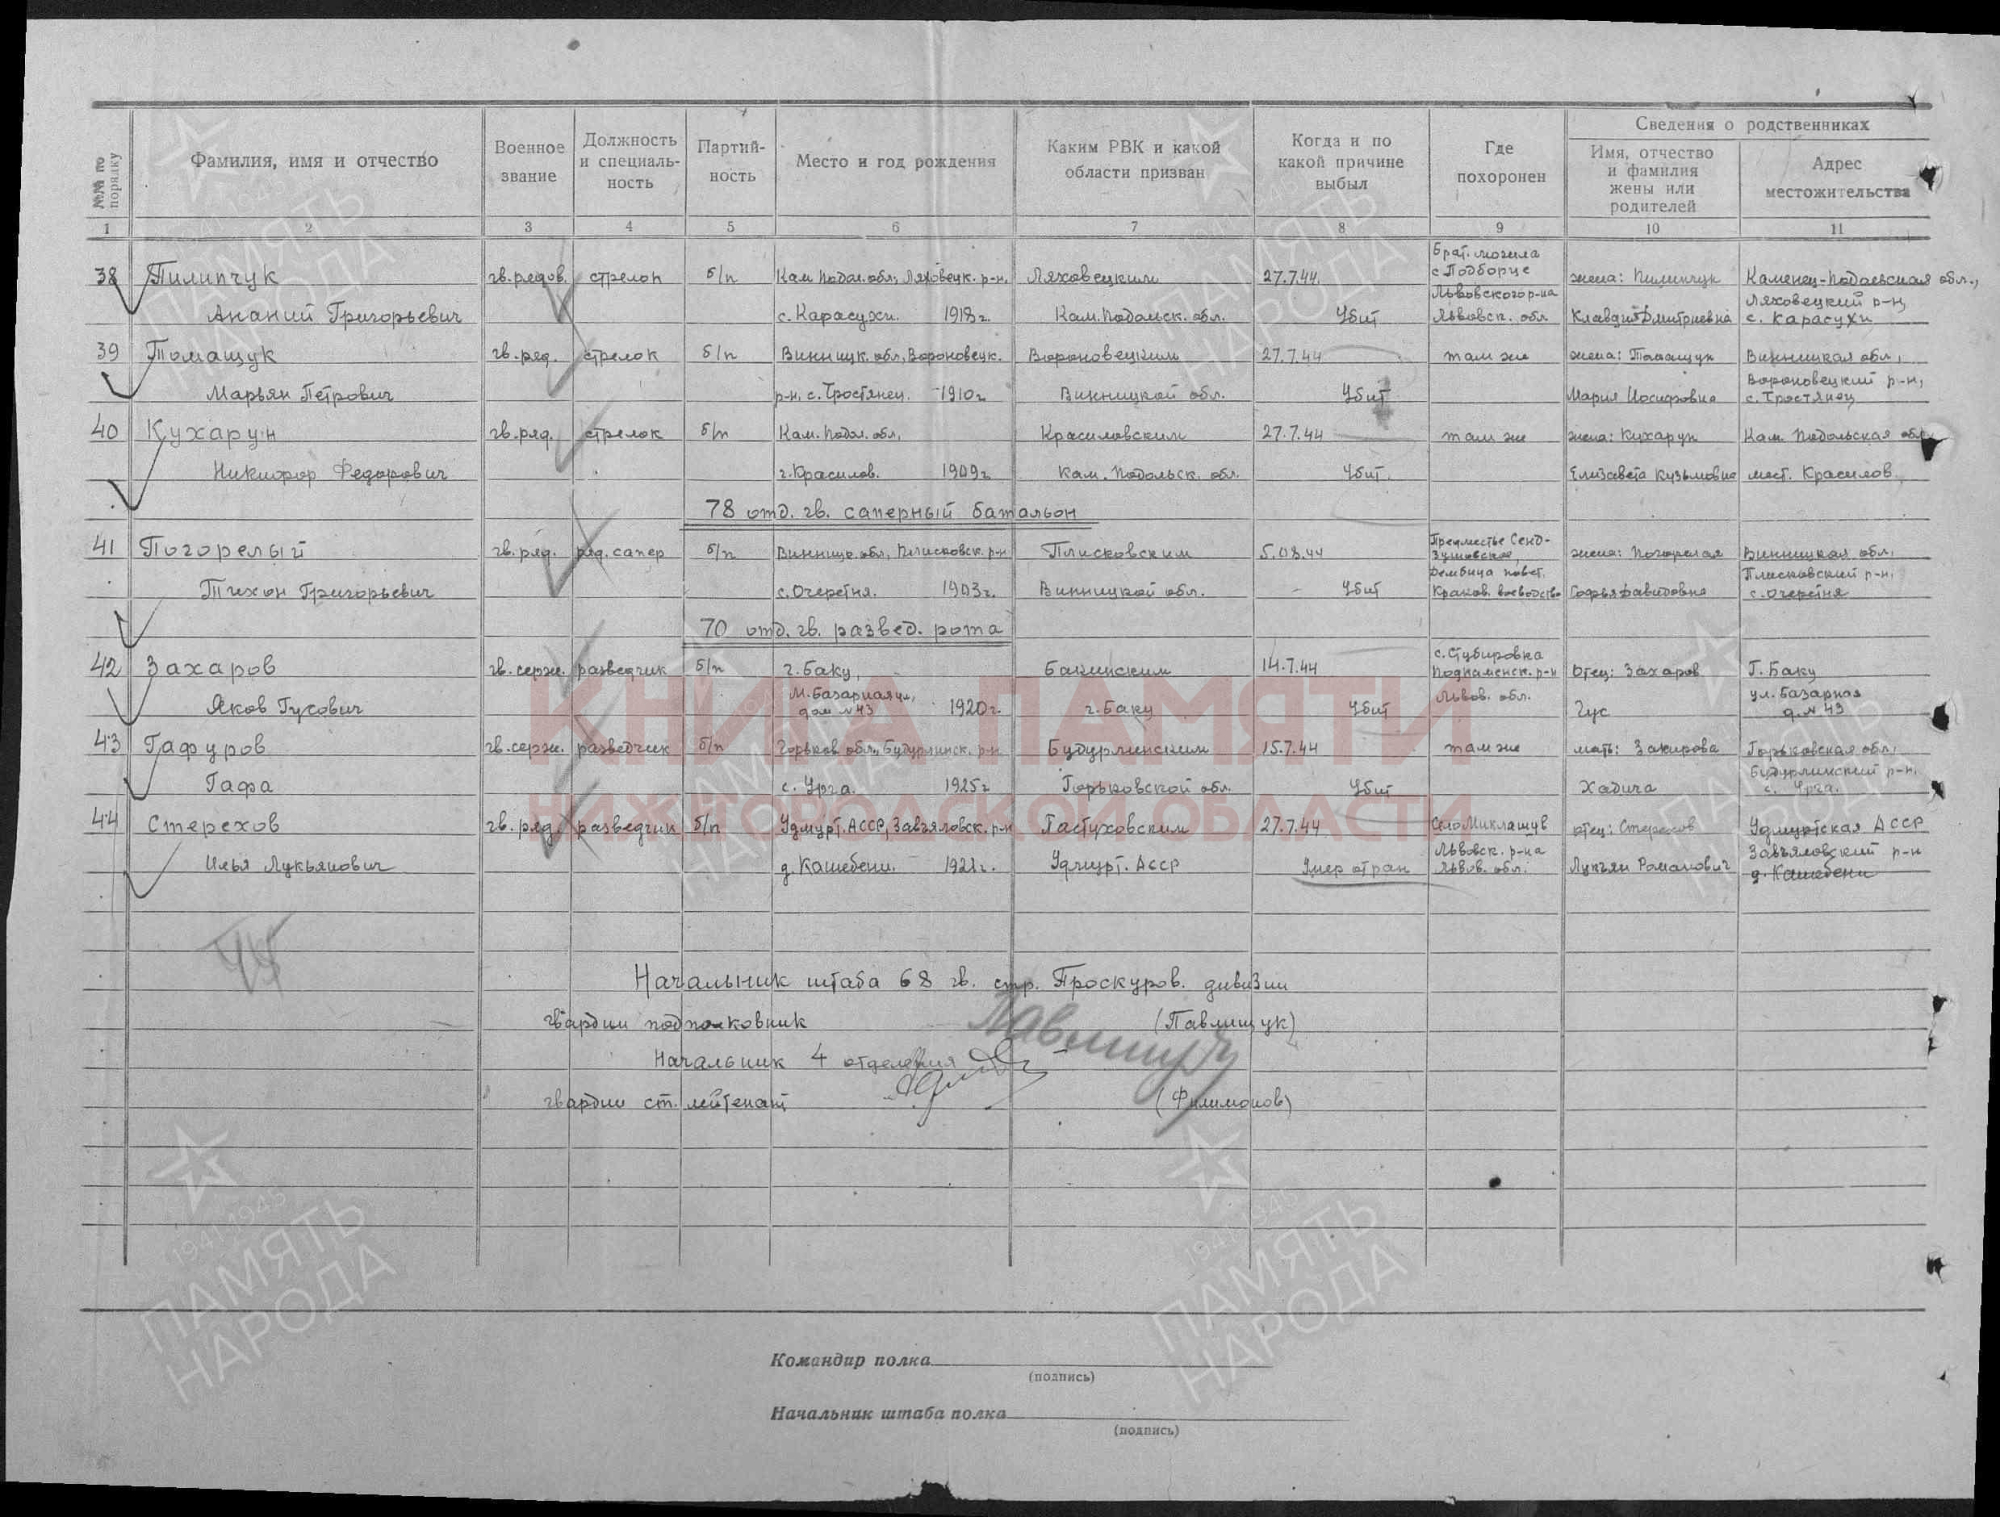 №№ по порядку
Фамилия, имя и отчество
Военное звание
Должность и специаль-ность
Партий-ность
Место и год рождения
Каким РВК и какой области призван
Когда и по какой причине выбыл
Где похоронен
Сведения о родственниках
Имя, отчество и фамилия жены или родителей
Адрес местожительства
1 2 3 4 5 6 7 8 9 10 11
Брат. могила
38 Пилипчук гв. рядов. стрелок б/п Кам. Подол. обл., Ляховецк. р-н. Ляховецким 27.7.44. с Подборце жена: Пилипчук Каменец-Подольская обл.,
Львовского р-на Ляховецкий р-н,
Ананий Григорьевич с. Карасухи. 1918г. Кам. Подольск. обл. Убит Львовск. обл Клавдия Дмитриевна с. Карасухи
39 Томащук гв. ряд. стрелок б/п Винницк. обл, Вороновецк. Вороновецким 27.7.44 там же жена: Томащук Винницкая обл,
Вороновецкий р-н,
Марьян Петрович р-н, с. Тростянец. 1910г Винницкой обл. Убит Мария Иосифовна с. Тростянец
40 Кухарун гв. ряд. стрелок б/п Кам. Подол. обл, Красиловским 27.7.44 там же жена: Кухарун Кам. Подольская обл
Никифор Федорович г. Красилов. 1909г Кам. Подольск. обл. Убит. Елизавета Кузьмовна мест. Красилов
78 отд. гв. саперный батальон
Предместье Сенд-
41 Погорелый гв. ряд. ряд. сапер б/п Винницк. обл, Плисковск. р-н Плисковским 5.08.44 жена: Погорелая Винницкая обл,
Дембица повет, Плисковский р-н,
Тихон Григорьевич с. Очеретня. 1903г. Винницкой обл. Убит Краков. воеводство Софья Давидовна с. Очеретня
70 отд. гв. развед. рота
с. Стубировка
42 Захаров гв. серж. разведчик б/п г. Баку, Бакинским 14.7.44 Подкаменск. р-н Отец: Захаров Г. Баку
М. Базарная ул, Львов. обл. ул. Базарная
Яков Гусович дом №43 1920г. г. Баку Убит Гус д. №43
43 Гафуров гв. серж. разведчик б/п Горьков. обл., Бутурлинск. р-н Бутурлинским 15.7.44 там же мать: Закирова Горьковская обл,
Бутурлинский р-н,
Гафа с. Урга. 1925г Горьковской обл. Убит Хадича с. Урга.
44 Стерехов гв. ряд. разведчик б/п Удмурт. АССР, Завьяловск. р-н Пастуховским 27.7.44 Село Миклашув отец: Стерехов Удмуртская АССР
Львовск. р-на Завьяловский р-н
Илья Лукьянович д. Кашебени. Удмурт. АССР Умер от ран Львов. обл. Лукъян Романович д. Кашебени
Начальник штаба 68 гв. стр. Проскуров. дивизии
гвардии подполковник (Павлищук)
Начальник 4 отделения
гвардии ст. лейтенант (Филимонов)
Командир полка
(подпись)
Начальник штаба полка
(подпись)
КНИГА ПАМЯТИ
НИЖЕГОРОДСКОЙ ОБЛАСТИ
1941-1945
ПАМЯТЬ
НАРОДА